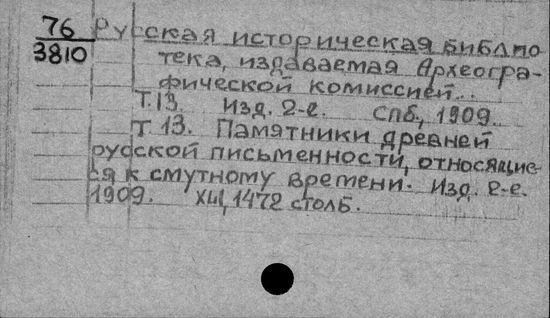 76 Русская историческая библио
3810 тека, издаваемая Археогра-
фической комиссией..
Т.13. Изд. 2-е. Спб., 1909.
Т. 13. Памятники древней
русской письменности, относящие-
ся к смутному времени. Изд. 2-е.
1909. 1472 столб.